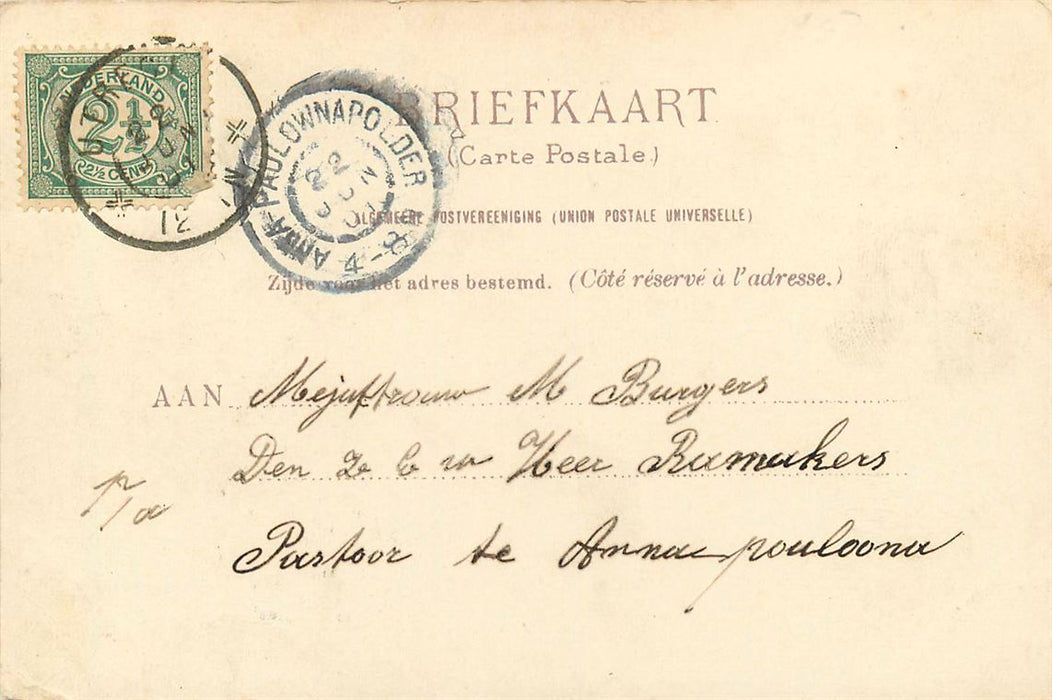 NEDERLAND
2½
2½ CENT
UTRECHT
12
ANNA-PAULOWNAPOLDER
22
JUN
4-8
BRIEFKAART
(Carte Postale.)
ALGEMEENE POSTVEREENIGING (UNION POSTALE UNIVERSELLE)
Zijde voor het adres bestemd. (Côté réservé à l'adresse.)
AAN Mejuffrouw M Burgers
Den Ze E w Heer Ramakers
p/a
Pastoor te Anna pouloona